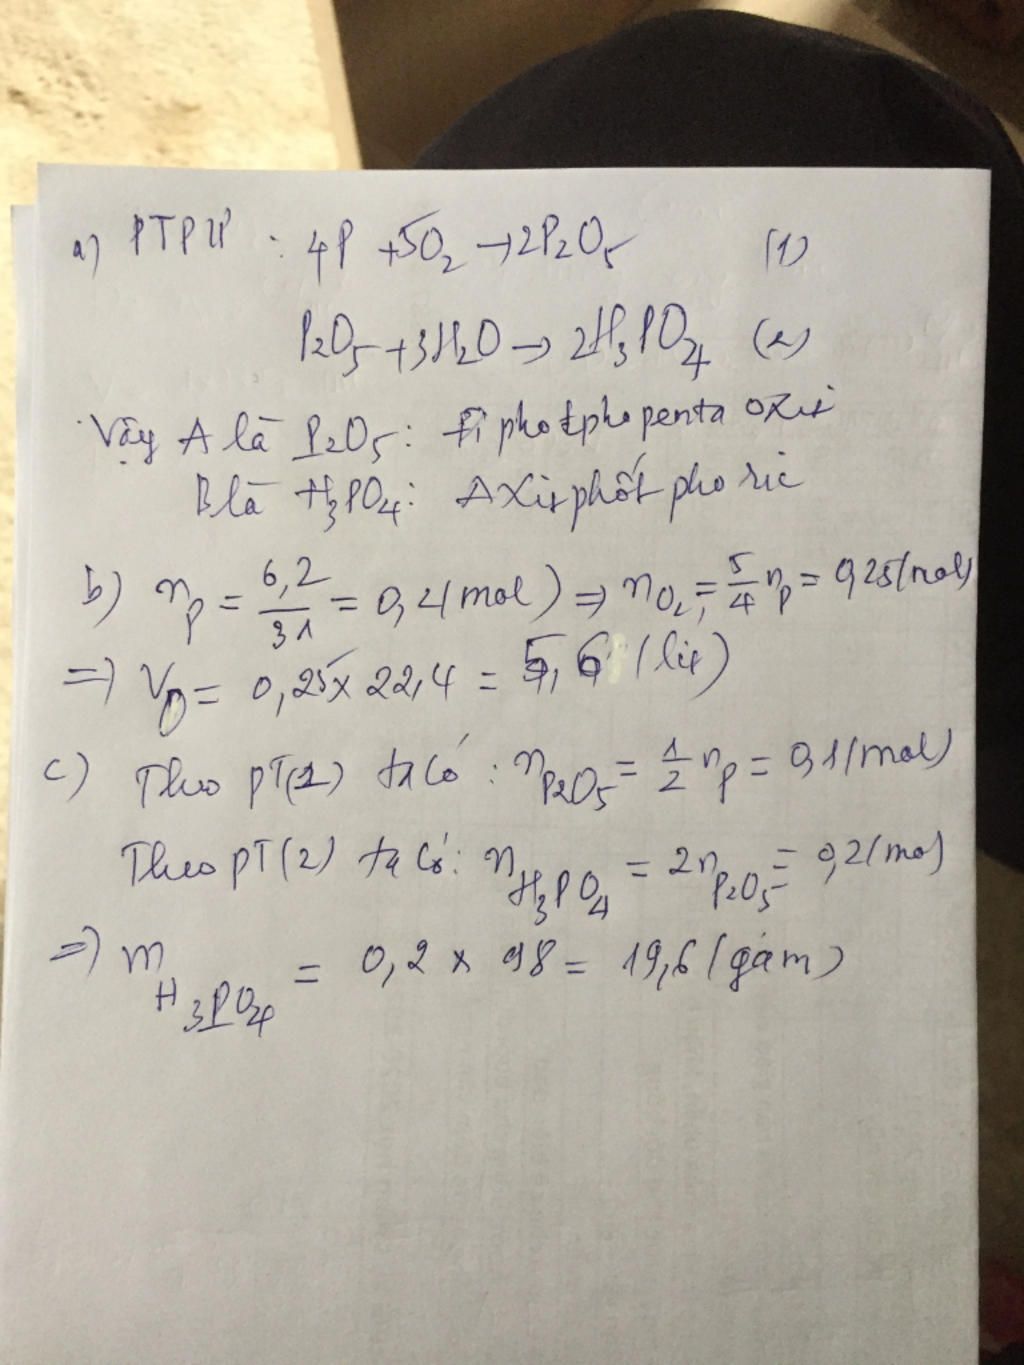 a) PTPƯ : 4P + 5O₂ → 2P₂O₅ (1)
P₂O₅ + 3H₂O → 2H₃PO₄ (2)
Vậy A là P₂O₅: điphotphopenta oxit
B là H₃PO₄: Axit phốt pho ric
b) nₚ = 6,2/31 = 0,2 (mol) ⇒ n O₂ = 5/4 nₚ = 0,25 (mol)
⇒ V = 0,25 x 22,4 = 5,6 (lít)
c) Theo PT(1) ta có : n P₂O₅ = 1/2 nₚ = 0,1 (mol)
Theo PT(2) ta có: n H₃PO₄ = 2n P₂O₅ = 0,2 (mol)
⇒ m H₃PO₄ = 0,2 x 98 = 19,6 (gam)